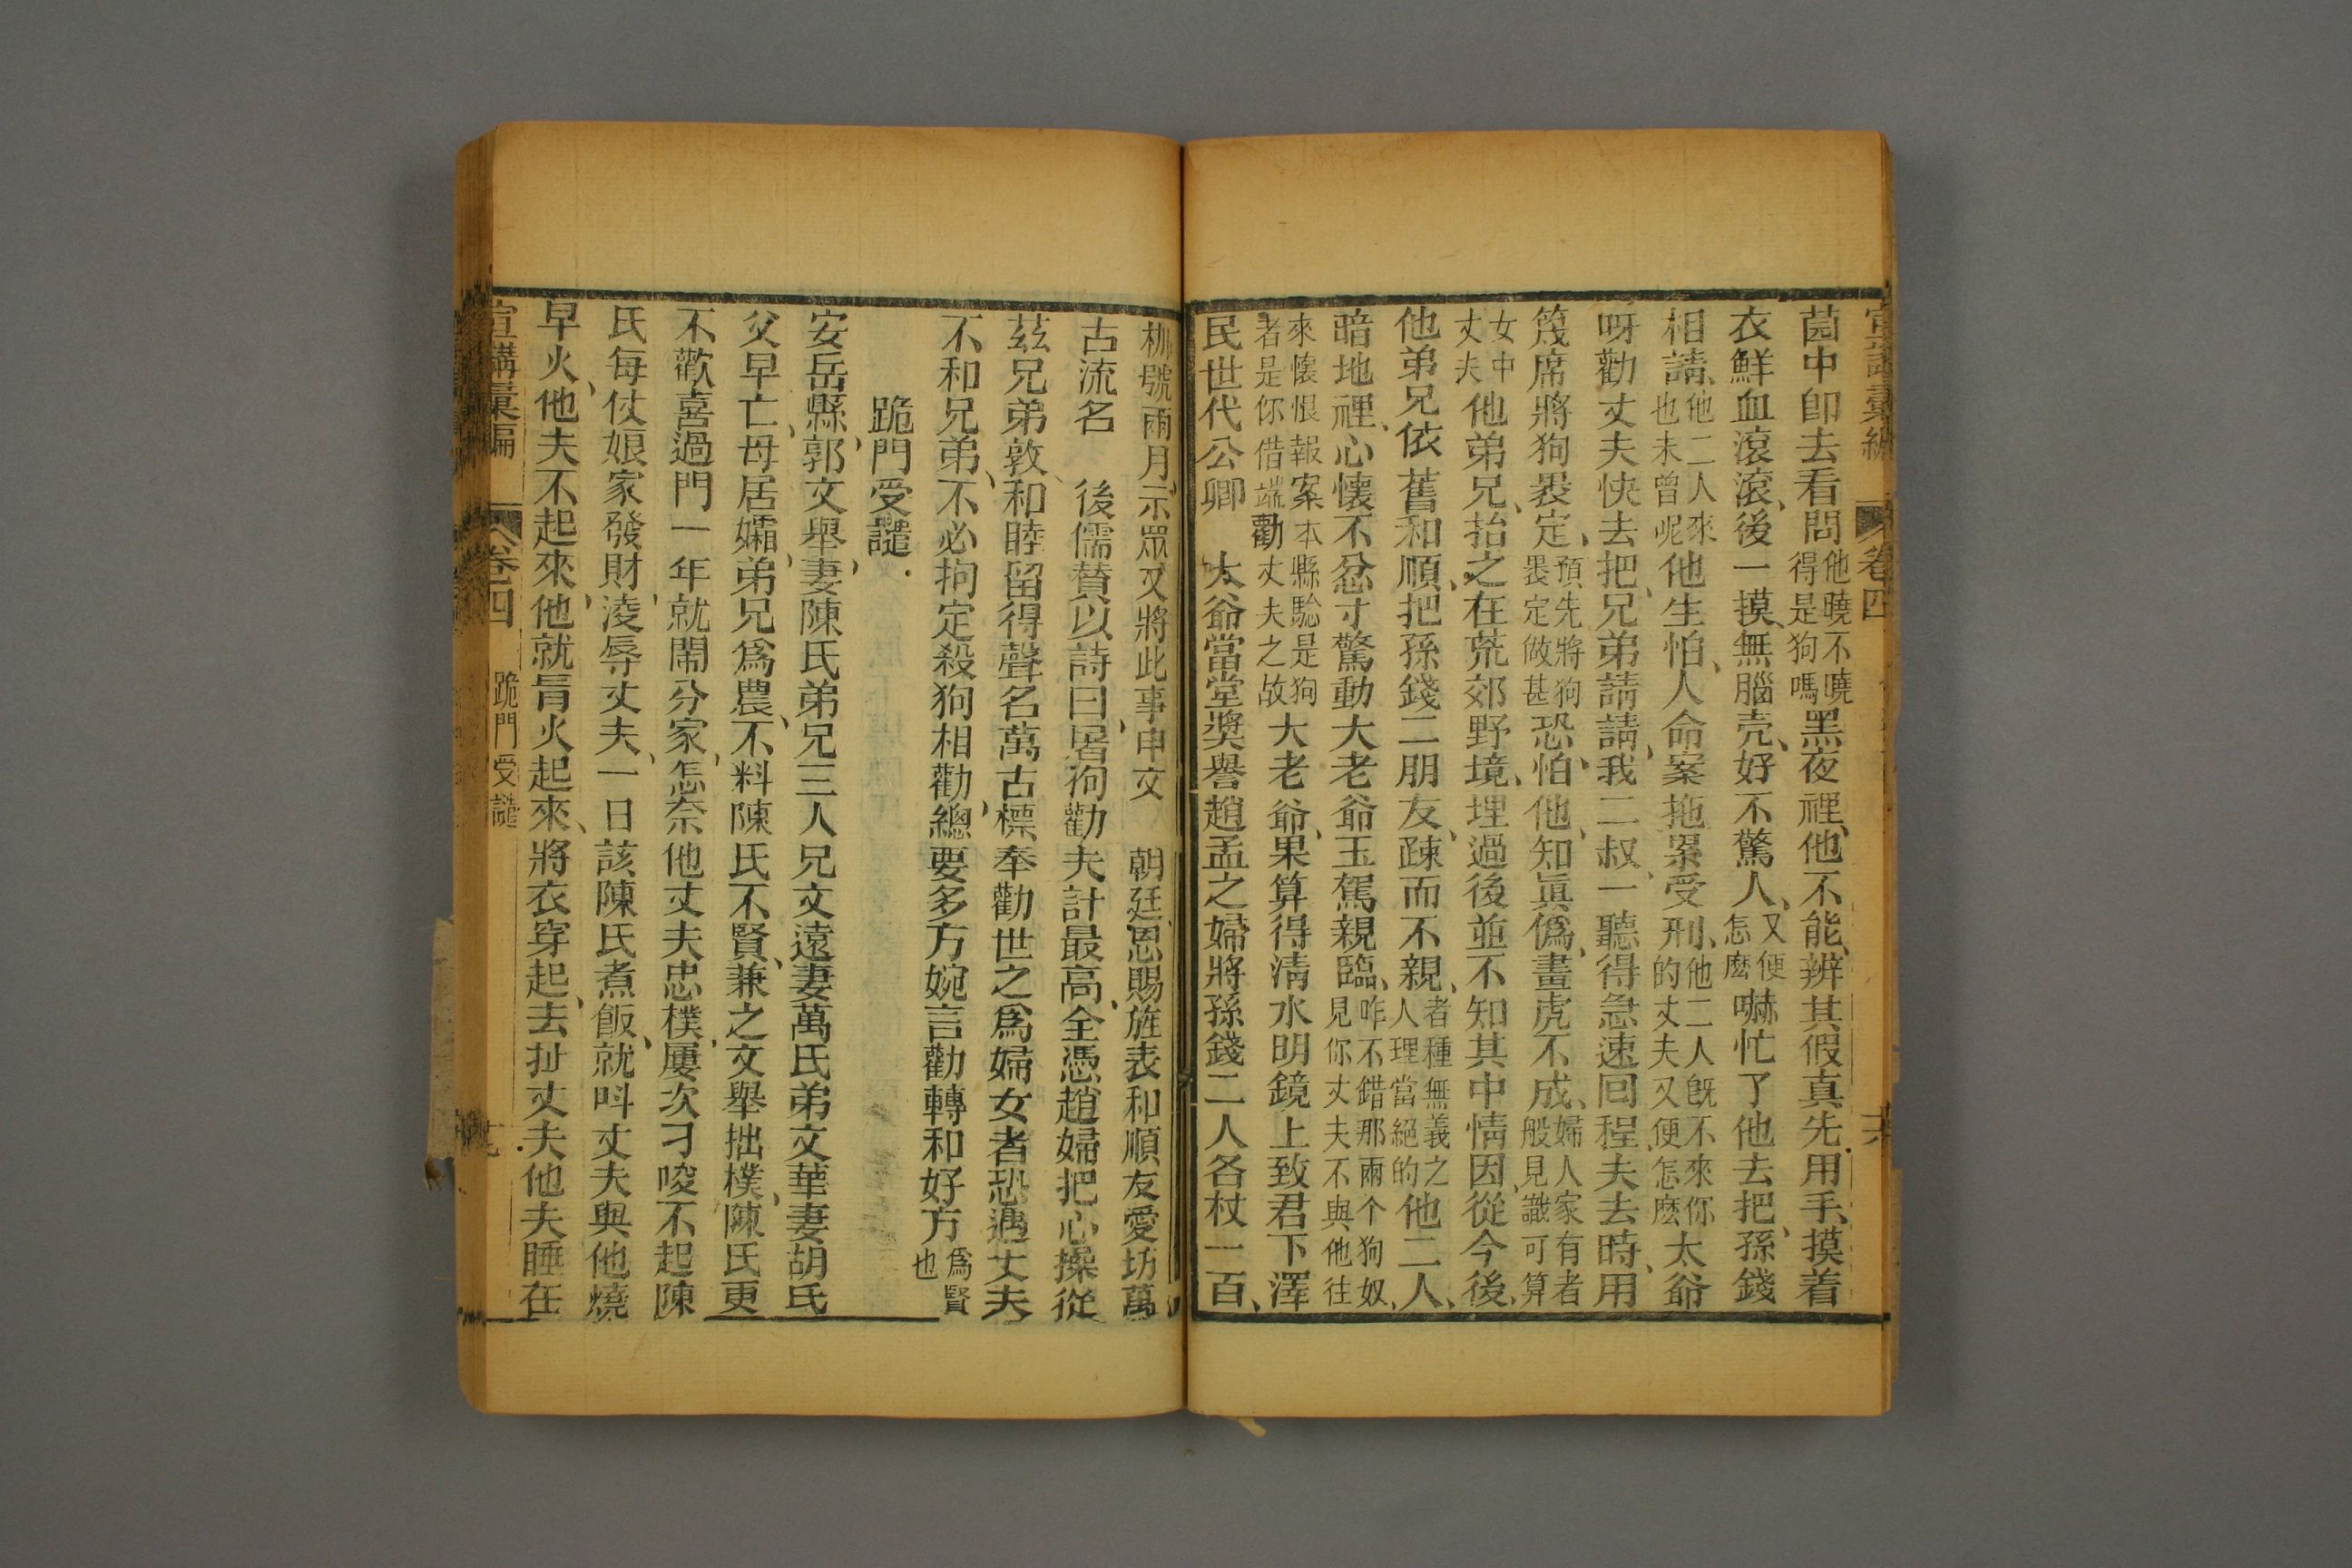 宣講彙編 卷四 共
茵中卽去看問他曉不曉得是狗嗎黑夜裡他不能辨其假真先用手摸着
衣鮮血滾滾後一摸無腦壳好不驚人又便怎麽嚇忙了他去把孫錢
相請他二人來也未曾呢他生怕人命案拖累受刑他二人旣不來你的丈夫又便怎麽太爺
呀勸丈夫快去把兄弟請請我二叔一聽得急速回程夫去時用
篾席將狗裹定預先將狗畏定做甚恐怕他知眞僞畫虎不成婦人家有者般見識可算
女中丈夫他弟兄抬之在荒郊野境埋過後並不知其中情因從今後
他弟兄依舊和順把孫錢二朋友踈而不親者種無義之人理當絕的他二人
暗地裡心懷不忿寸驚動大老爺玉駕親臨咋不錯那兩个狗奴見你丈夫不與他往
來懷恨報案本縣騐是狗者是你借端勸丈夫之故大老爺果算得淸水明鏡上致君下澤
民世代公卿 大爺當堂奬譽趙孟之婦將孫錢二人各杖一百
枷號兩月示眾又將此事申文 朝廷恩賜旌表和順友愛坊萬
古流名 後儒賛以詩曰屠狗勸夫計最高全憑趙婦把心操從
茲兄弟敦和睦留得聲名萬古標奉勸世之爲婦女者恐遇丈夫
不和兄弟不必拘定殺狗相勸總要多方婉言勸轉和好方爲賢也
跪門受譴
安岳縣郭文舉妻陳氏弟兄三人兄文遠妻萬氏弟文華妻胡氏
父早亡母居孀弟兄爲農不料陳氏不賢兼之文舉拙樸陳氏更
不歡喜過門一年就鬧分家怎奈他丈夫忠樸屢次刁唆不起陳
氏每仗娘家發財淩辱丈夫一日該陳氏煮飯就呌丈夫與他燒
早火他夫不起來他就肎火起來將衣穿起去扯丈夫他夫睡在
宣講彙編 卷四 跪門受譴